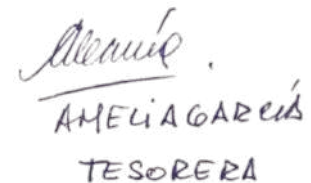 AMELIA GARCIA
TESORERA